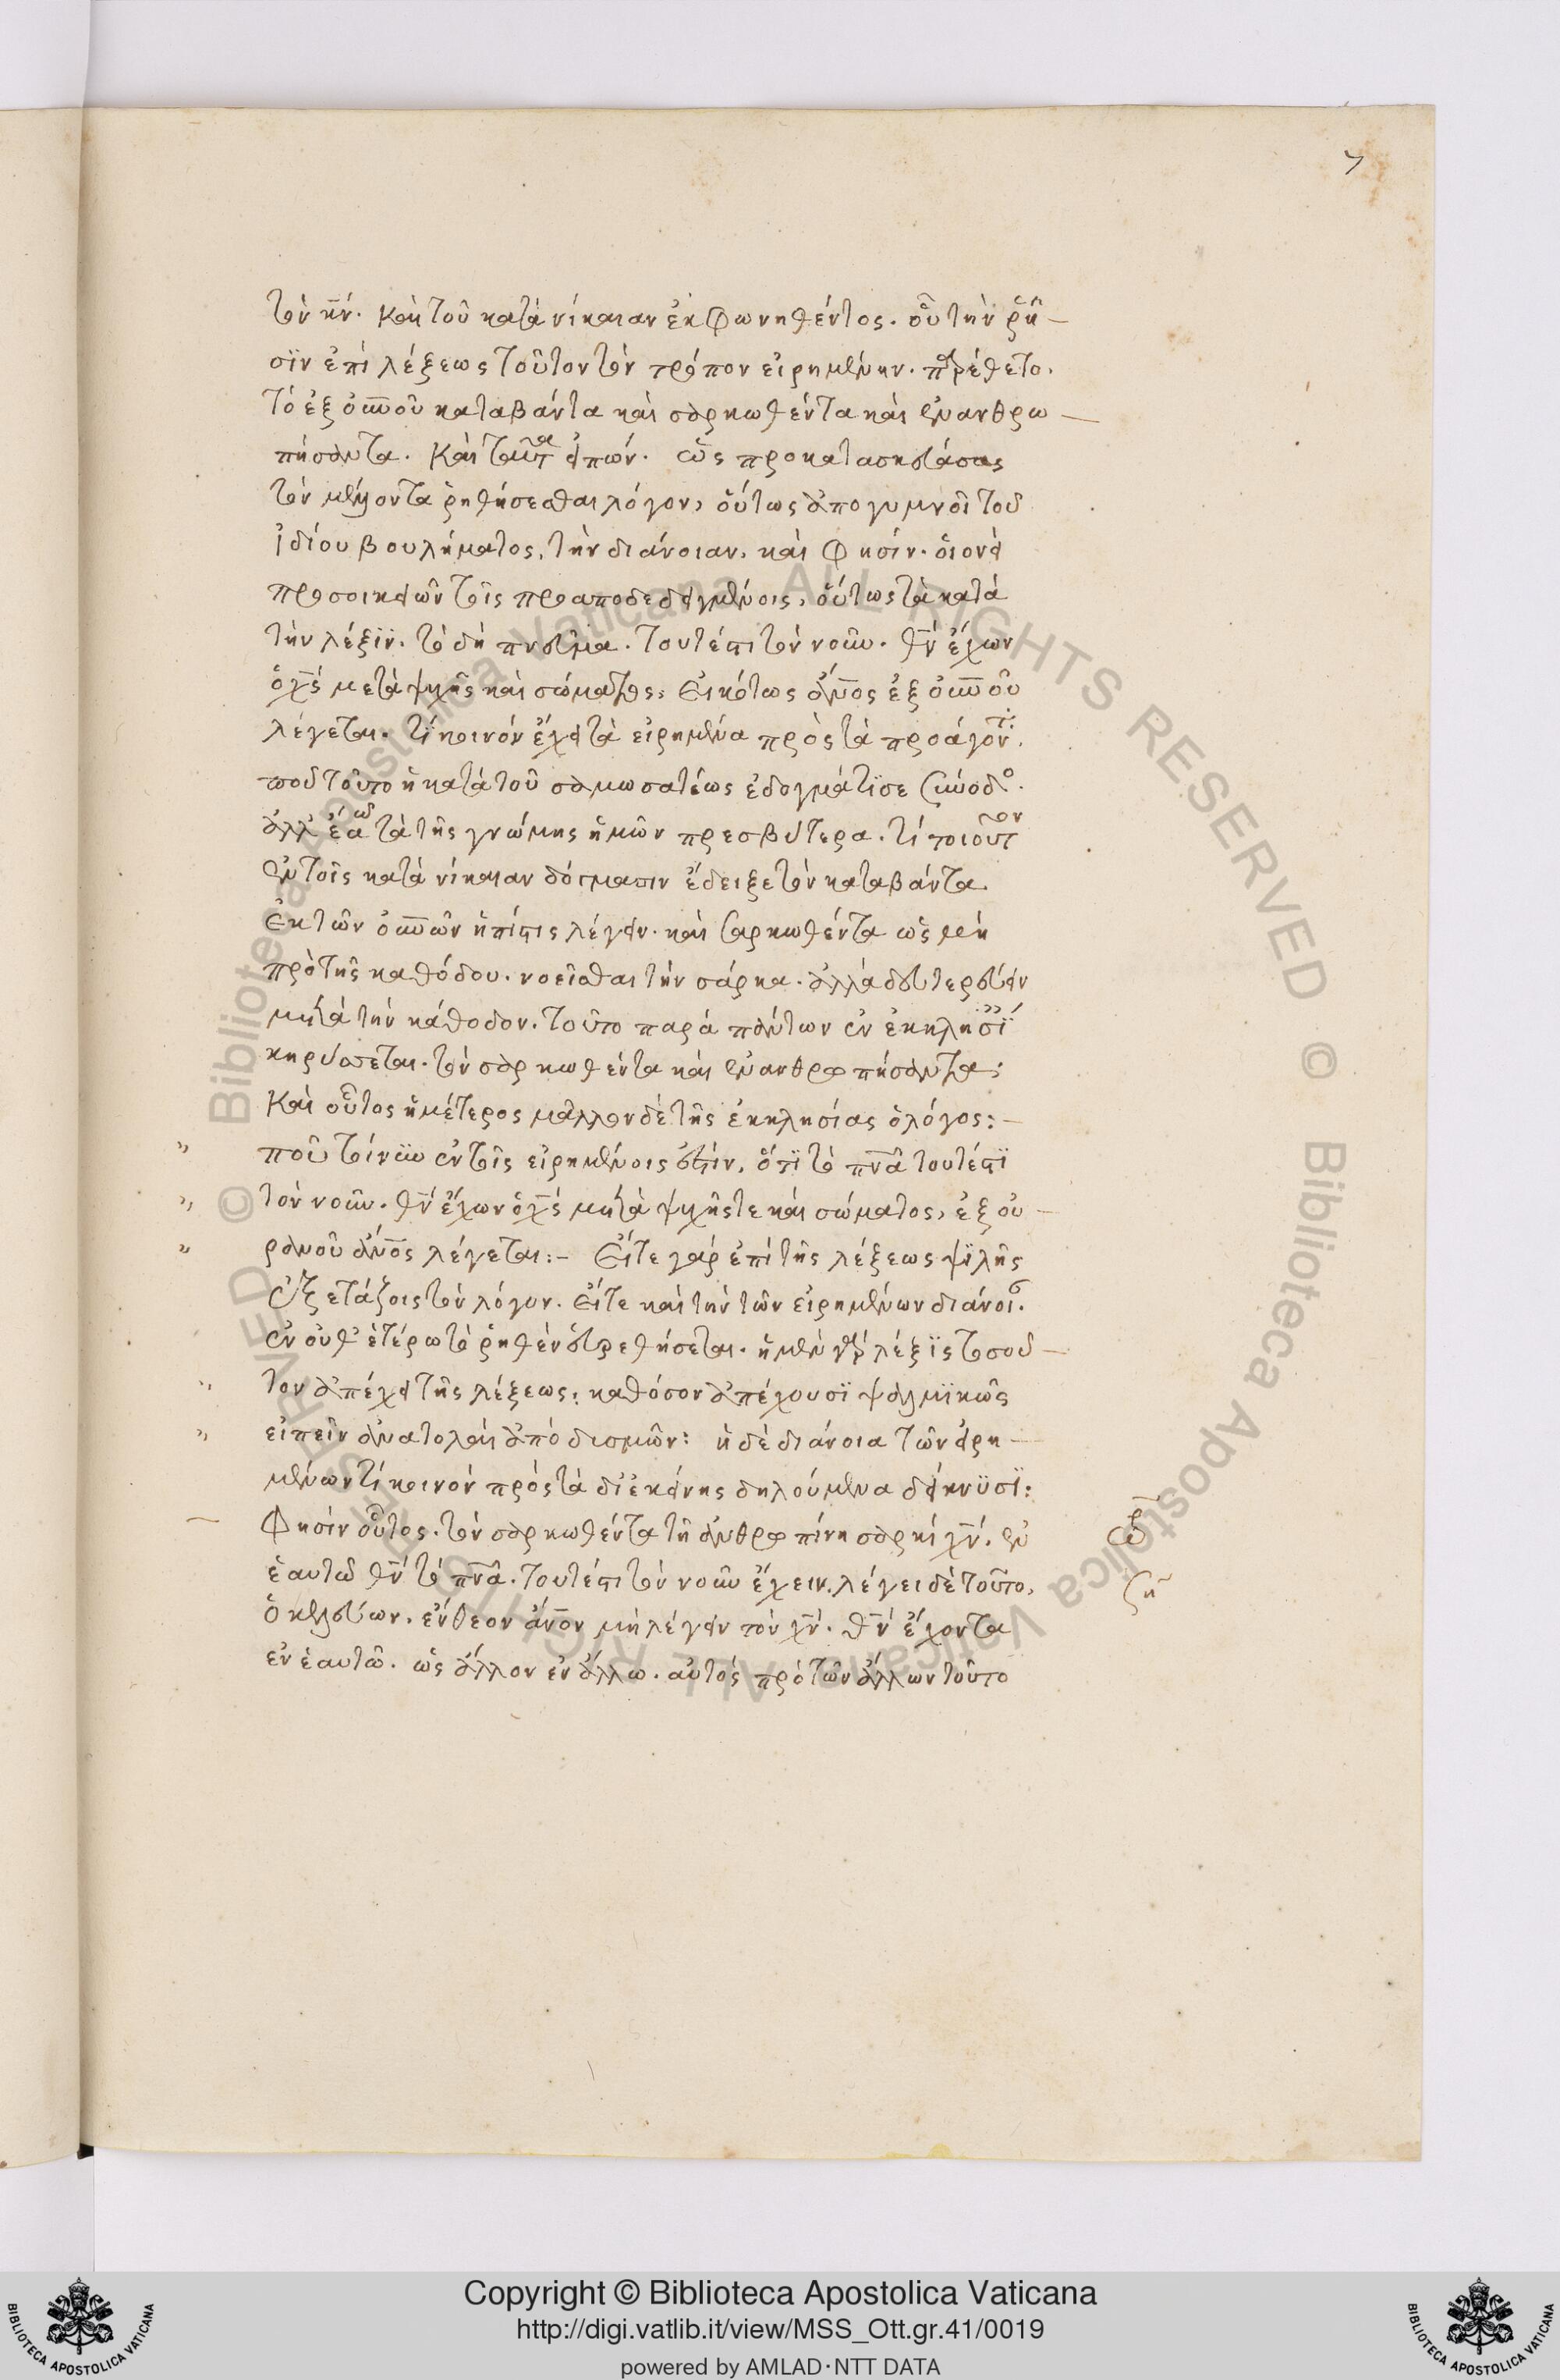 7
τὸν κν̅. καὶ τοῦ κατὰ νίκαιαν ἐκφωνηθέντος. οὗ τὴν ῥῆ—
σϊν ἐπὶ λέξεως τοῦτον τὸν τρόπον εἰρημένην. παρέθετο.
τὸ ἐξ οὐνοῦ καταβάντα καὶ σαρκωθέντα καὶ ἐνανθρω—
πήσαντα. καὶ ταῦτα εἰπών. ὡς προκατασκευάσας
τὸν μέλλοντα ῥηθήσεσθαι λόγον, οὕτως ἀπογυμνοῖ τοῦ
ἰδίου βουλήματος, τὴν διάνοιαν. καὶ φησίν. οἱονεὶ
προσοικειῶν τοῖς προαποδεδειγμένοις, οὕτως τὰ κατὰ
τὴν λέξϊν. τὸ δὴ πνεῦμα. τουτέστι τὸν νοῦν. θν̅ ἔχων
ὁ χς̅ μετὰ ψυχῆς καὶ σώματος, εἰκότως ἄνος ἐξ οὐνοῦ
λέγεται. τί κοινὸν ἔχει τὰ εἰρημένα πρὸς τὰ προάγοντ.
ποῦ τοῦτο ἡ κατὰ τοῦ σαμωσατέως ἐδογμάτϊσε σύνοδο.
ἀλλ' ἐάσω τὰ τῆς γνώμης ἡμῶν πρεσβύτερα. τί τοιοῦτον
ἐν τοῖς κατὰ νίκαιαν δόγμασιν ἔδειξε τὸν καταβάντα
ἐκ τῶν οὐνῶν ἡ πίστις λέγειν. καὶ σαρκωθέντα ὡς μὴ
πρὸ τῆς καθόδου. νοεῖσθαι τὴν σάρκα. ἀλλὰ δευτερεύειν
μετὰ τὴν κάθοδον. τοῦτο παρὰ πάντων ἐν ἐκκλησΐ
κηρύσσεται. τὸν σαρκωθέντα καὶ ἐνανθρωπήσαντα;
καὶ οὗτος ἡμέτερος μᾶλλον δὲ τῆς ἐκκλησίας ὁ λόγος:—
" ποῦ τοίνυν ἐν τοῖς εἰρημένοις ἐστὶν, ὅτϊ τὸ πνα̅ τουτέστϊ
" τὸν νοῦν. θν̅ ἔχων ὁ χς̅ μετὰ ψυχῆς τε καὶ σώματος, ἐξ οὐ—
" ρανοῦ ἄνος λέγεται:— εἴτε γὰρ ἐπὶ τῆς λέξεως ψϊλῆς
ἐξετάζοις τὸν λόγον. εἴτε καὶ τὴν τῶν εἰρημένων διάνοι.
ἐν οὐθ' ἑτέρω τὸ ῥηθὲν εὑρεθήσεται. ἡ μὲν γὰρ λέξϊς τοσοῦ—
" τον ἀπέχει τῆς λέξεως; καθόσον ἀπέχουσϊ ψαλμϊκῶς
" εἰπεῖν ἀνατολαὶ ἀπὸ δυσμῶν: ἡ δὲ διάνοια τῶν εἰρη—
μένων τί κοινὸν πρὸς τὰ δι' ἐκείνης δηλούμενα δείκνϋσϊ:
— φησὶν οὗτος. τὸν σαρκωθέντα τῆ ἀνθρωπίνη σαρκὶ χν̅. ἐν
ἑαυτῶ θν̅ τὸ πνα̅. τουτέστι τὸν νοῦν ἔχειν. λέγει δὲ τοῦτο,
ζη
ὁ κελεύων. ἔνθεον ἄνον μὴ λέγειν τὸν χν̅. θν̅ ἔχοντα
ἐν ἑαυτῶ. ὡς ἄλλον ἐν ἄλλω. αὐτὸς πρὸ τῶν ἄλλων τοῦτο
© Biblioteca Apostolica Vaticana ALL RIGHTS RESERVED © Biblioteca Apostolica Vaticana ALL RIGHTS RESERVED
Copyright © Biblioteca Apostolica Vaticana
http://digi.vatlib.it/view/MSS_Ott.gr.41/0019
powered by AMLAD·NTT DATA
BIBLIOTECA APOSTOLICA VATICANA
BIBLIOTECA APOSTOLICA VATICANA